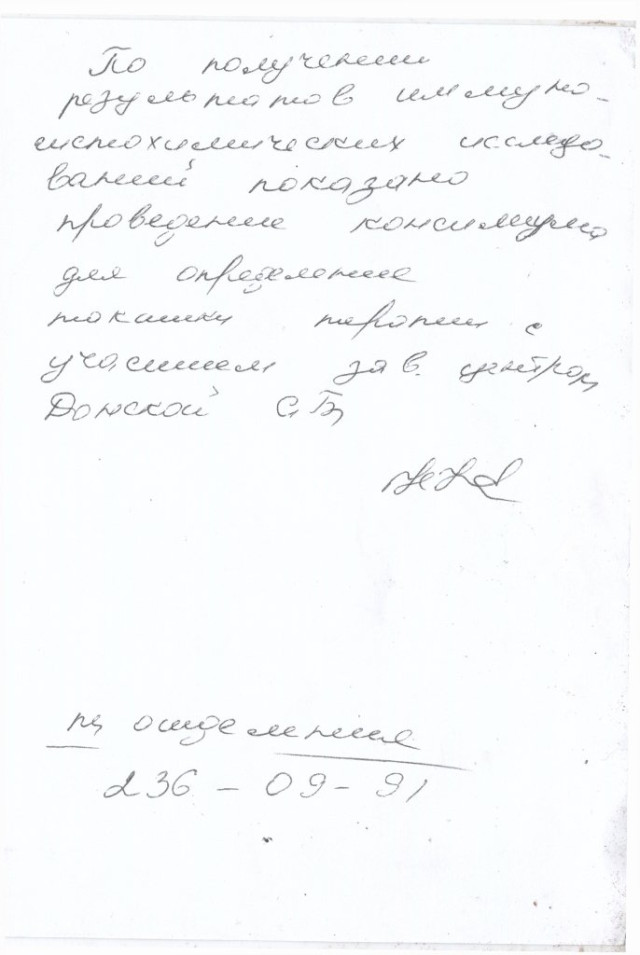 По получении
результатов иммуно-
гистохимических исследо-
ваний показано
проведение консилиума
для определение
тактики терапии с
участием зав. центром
Донской С.В.
отделения
236 - 09 - 91